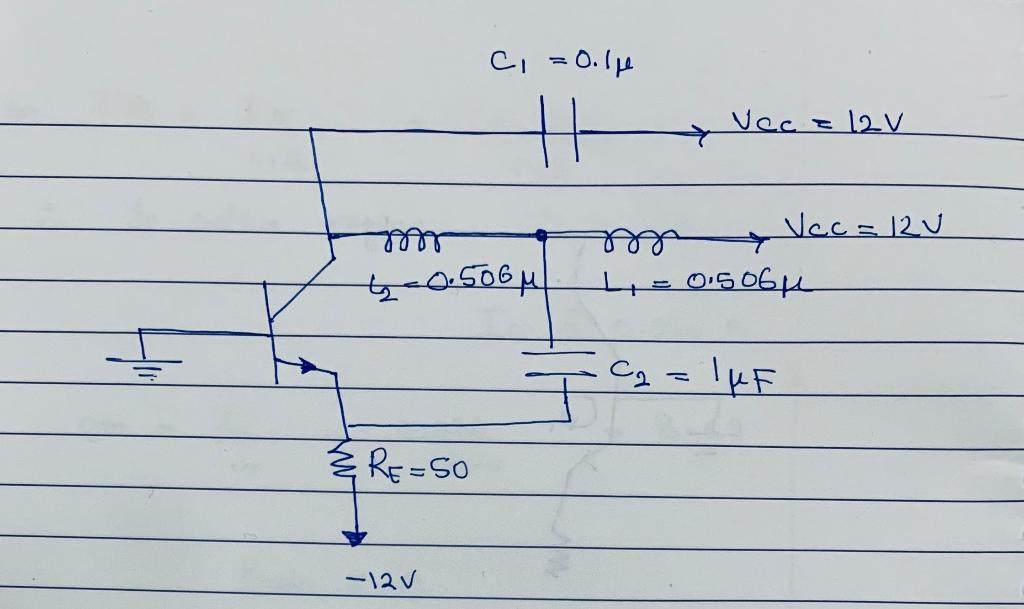 C1 = 0.1μ
Vcc = 12V
Vcc = 12V
L2 = 0.506μ
L1 = 0.506μ
C2 = 1μF
RE = 50
-12V